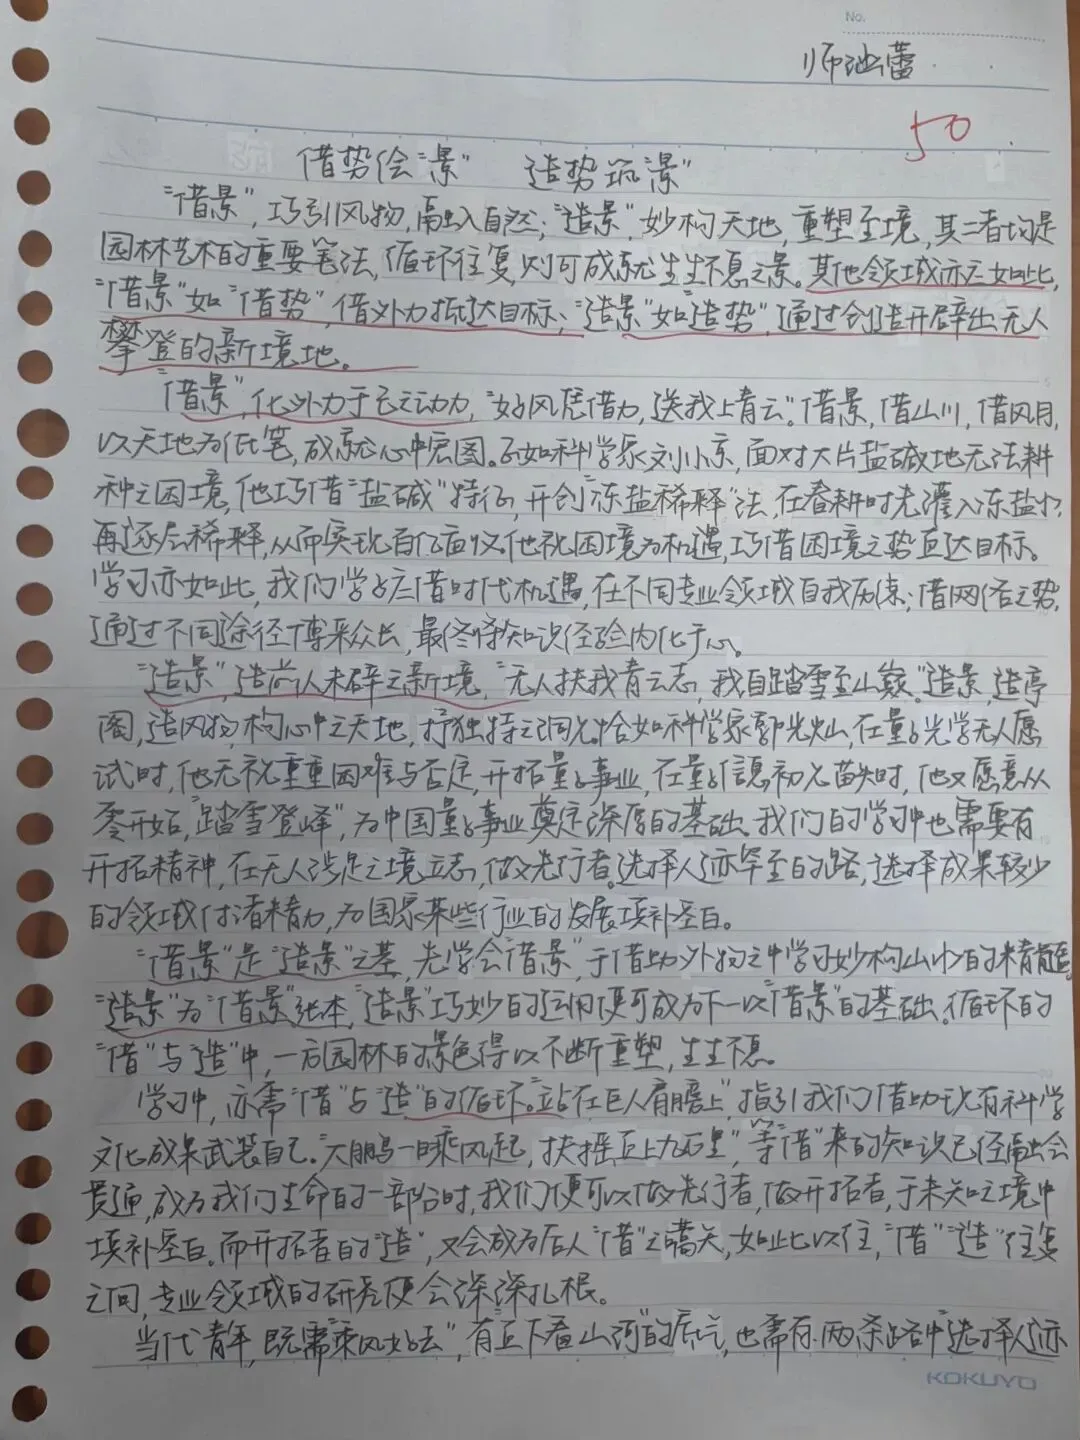 No.
师迦蕾
50
借势绘"景" 造势筑"景"
"借景",巧引风物,融入自然;"造景",妙构天地,重塑至境,其二者均是
园林艺术的重要笔法,循环往复,则可成就生生不息之景。其他领域亦应如此,
"借景"如"借势",借外力抵达目标、"造景"如"造势",通过创造开辟出无人
攀登的新境地。
"借景",化外力于己之动力,"好风凭借力,送我上青云"。借景,借山川,借风月,
以天地为纸笔,成就心中宏图。正如科学家刘小京,面对大片盐碱地无法耕
种之困境,他巧借"盐碱"特征,开创"冻盐稀释"法,在春耕时先灌入冻盐水,
再逐层稀释,从而实现百亿亩收。他视困境为机遇,巧借困境之势直达目标。
学习亦如此,我们学子应借时代机遇,在不同专业领域自我历练;借网络之势,
通过不同途径博采众长,最终将知识经验内化于心。
"造景",造前人未辟之新境,"无人扶我青云志,我自踏雪至山巅"。造景,造亭
阁,造风物,构心中之天地,抒独特之洞见。恰如科学家郭光灿,在量子光学无人愿
试时,他无视重重困难与否定,开拓量子事业,在量子信息初见苗头时,他又愿意从
零开始,"踏雪登峰",为中国量子事业奠定深厚的基础。我们的学习中也需要有
开拓精神,在无人涉足之境立志,做先行者。选择人迹罕至的路,选择成果较少
的领域付诸精力,为国家某些行业的发展填补空白。
"借景"是"造景"之基,先学会"借景",于借助外物之中学习妙构山水的精髓。
"造景"为"借景"张本,"造景"巧妙的运用便可成为下一次"借景"的基础。循环的
"借"与"造"中,一方园林的景色得以不断重塑,生生不息。
学习中,亦需"借"与"造"的循环。"站在巨人肩膀上",指引我们借助现有科学
文化成果武装自己。"大鹏一日乘风起,扶摇直上九万里",等"借"来的知识已经融会
贯通,成为我们生命的一部分时,我们便可以做先行者,做开拓者,于未知之境中
填补空白。而开拓者的"造",又会成为后人"借"之荀关,如此以往,"借""造"往复
之间,专业领域的研究便会深深扎根。
当代青年,既需"乘风好去",有"直下看山河"的底气,也需有"两条路中选择人迹
KOKUYO